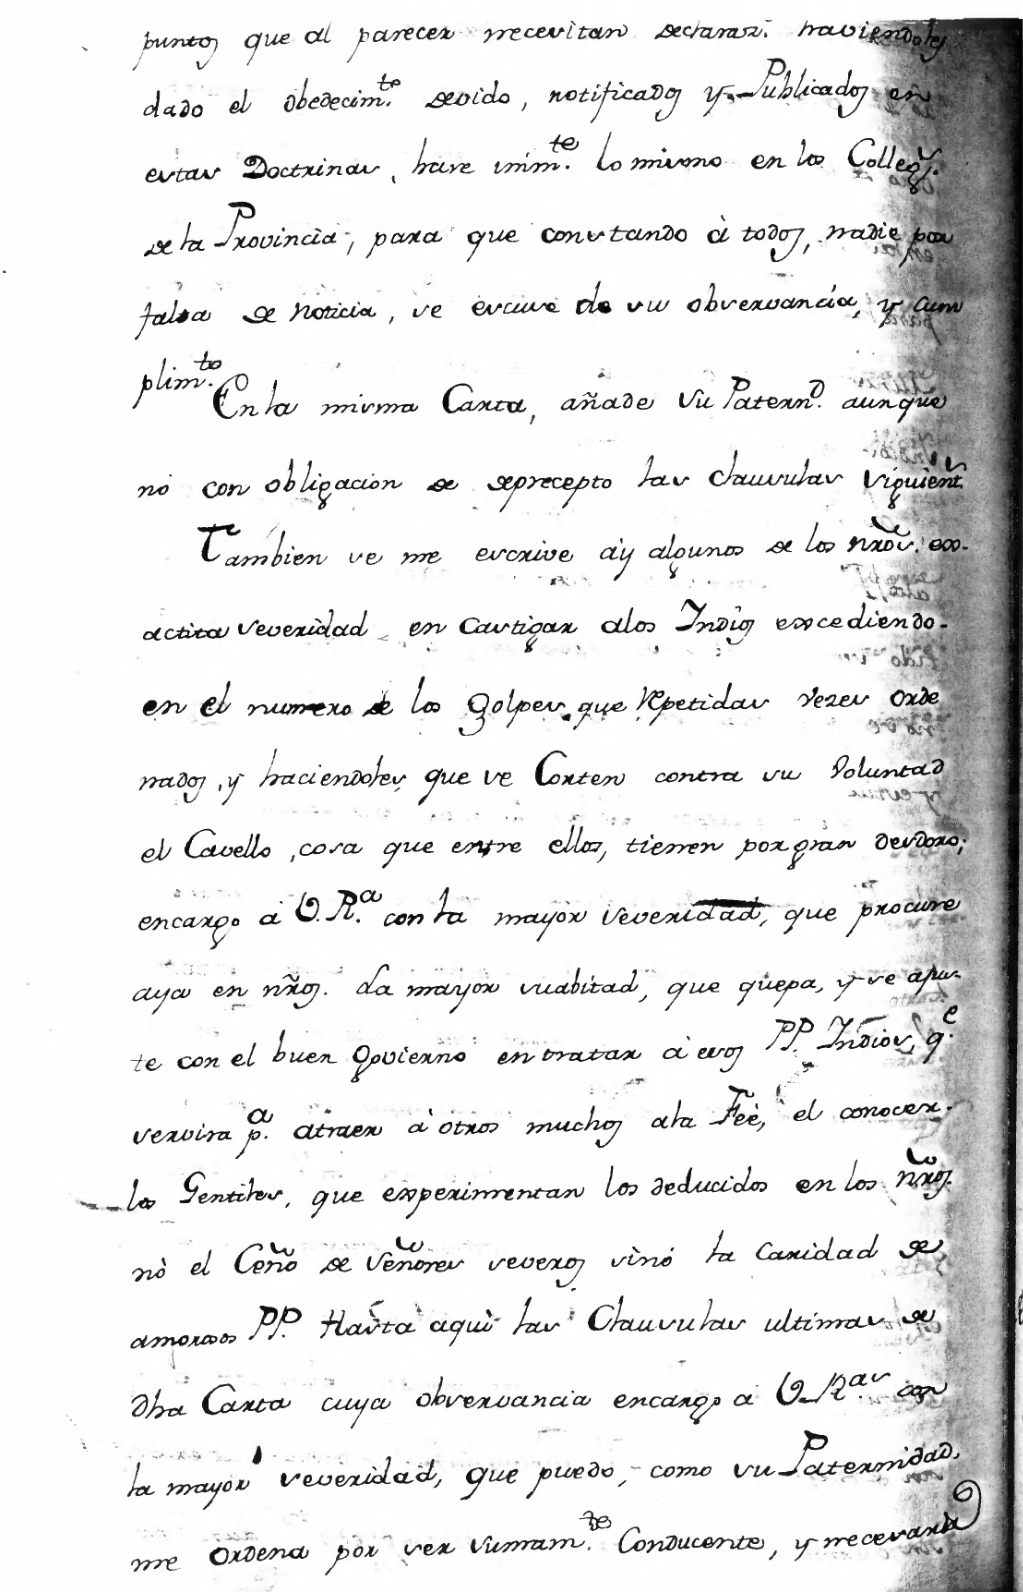 puntos que al parecer necesitan declararz.ⁿ haviendoles
dado el obedecim.to devido, notificados y Publicados en
estas Doctrinas, hare inim.te lo mismo en los Colleg.s
de la Provincia, para que constando à todos, nadie por
falsa de noticia, se escuse de su observancia, y cum
plim.to
En la misma Carta, añade su Patern.d aunque
no con obligacion de deprecepto las clausulas siguient.s
Tambien se me escrive aÿ algunos de los nr̃os. ex-
actita severidad en castigar alos Indios excediendo-
en el numero de los golpes que repetidas vezes orde
nados, y haciendoles que se Corten contra su Voluntad
el Cavello, cosa que entre ellos, tienen por gran desdoro;
encargo à V. R.a con la mayor severidad, que procure
aya en nr̃os. La mayor suabitad, que quepa, y se ajus-
te con el buen govierno en tratar à esos PP. Indios, q.e
servira p.a atraer à otros muchos ala Feè, el conocer-
los Gentiles, que experimentan los deducidos en los nr̃os.
nò el Ceño de señores severos sinò la Caridad de
amorosos PP. Hasta aqui las Clausulas ultimas de
dha Carta cuya observancia encargo à V. R.as con
la mayor severidad, que puedo, como su Paternidad,
me ordena por ser sumam.te Conducente, y necesaria